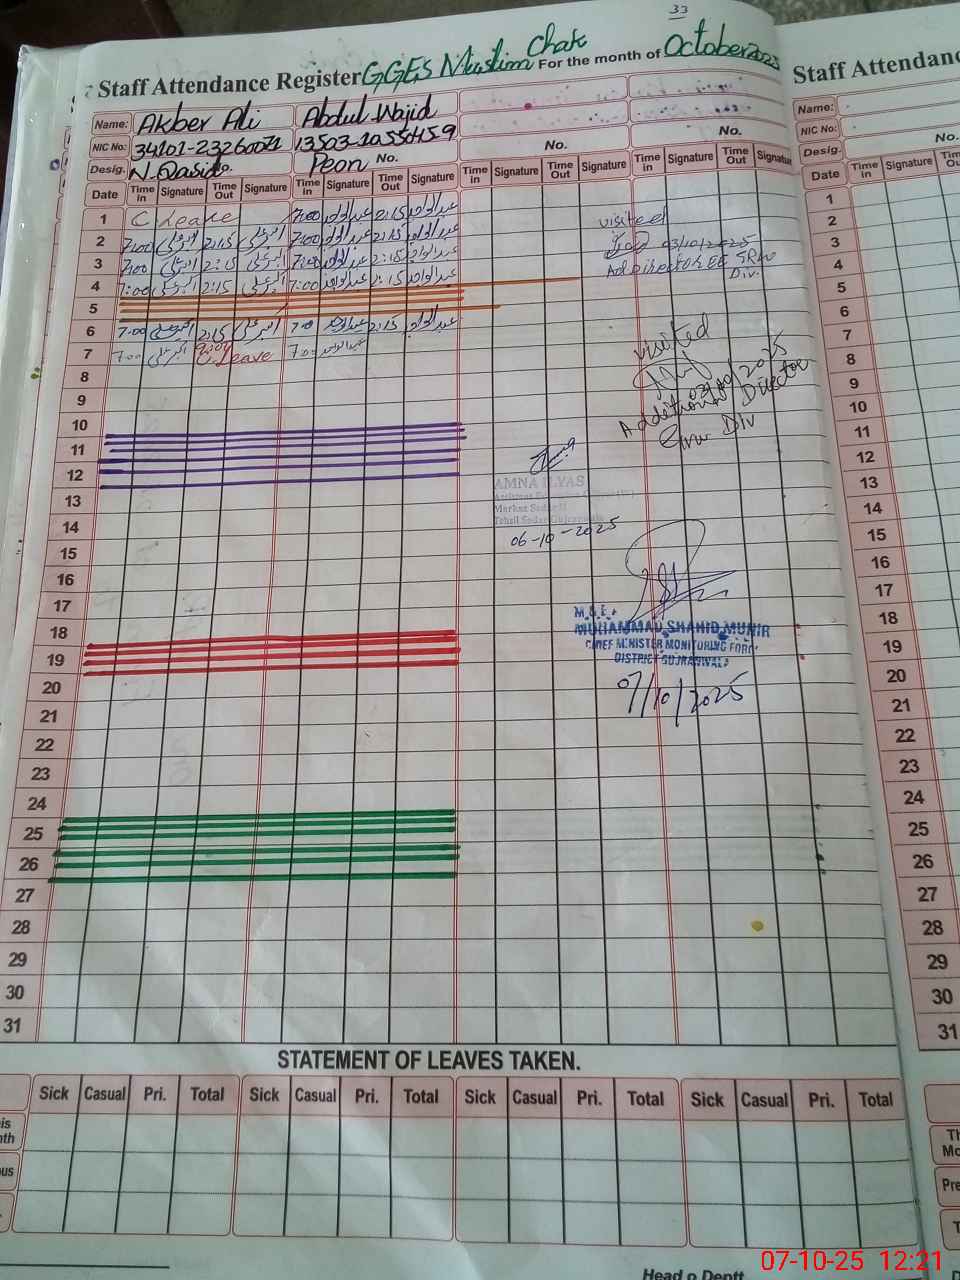 33
Staff Attendance Register GGES Muslim Chak For the month of October 2025
Name: Akber Ali Abdul Wajid
NIC No: 34101-2326007 13503-1055645-9
Desig. N.Qasid No. Peon No. No. No.
Date Time in Signature Time Out Signature Time in Signature Time Out Signature Time in Signature Time Out Signature Time in Signature Time Out Signature
1 C Leave 7:00 عبدالواجد 2:15 عبدالواجد
2 7:00 اکبر علی 2:15 اکبر علی 7:00 عبدالواجد 2:15 عبدالواجد
3 7:00 اکبر علی 2:15 اکبر علی 7:00 عبدالواجد 2:15 عبدالواجد
4 7:00 اکبر علی 2:15 اکبر علی 7:00 عبدالواجد 2:15 عبدالواجد
5
6 7:00 اکبر علی 2:15 اکبر علی 7:00 عبدالواجد 2:15 عبدالواجد
7 7:00 اکبر علی Leave 7:00 عبدالواجد
8
9
10
11
12
13
14
15
16
17
18
19
20
21
22
23
24
25
26
27
28
29
30
31
visited
03/10/2025
Ad Director EE GRW
Div.
visited
03/10/2025
Additional Director
Grw Div
AMNA ILYAS
Markaz Sadar II
Tehsil Sadar Gujranwala
06-10-2025
M.E.E.
MUHAMMAD SHAHID MUNIR
CHIEF MINISTER MONITORING FORCE
DISTRICT GUJRANWALA
07/10/2025
STATEMENT OF LEAVES TAKEN.
Sick Casual Pri. Total Sick Casual Pri. Total Sick Casual Pri. Total Sick Casual Pri. Total
Staff Attendanc
Name:
NIC No:
Desig. No.
Date Time in Signature
1
2
3
4
5
6
7
8
9
10
11
12
13
14
15
16
17
18
19
20
21
22
23
24
25
26
27
28
29
30
31
Th
Mo
Pre
T
Head o Deptt
07-10-25 12:21